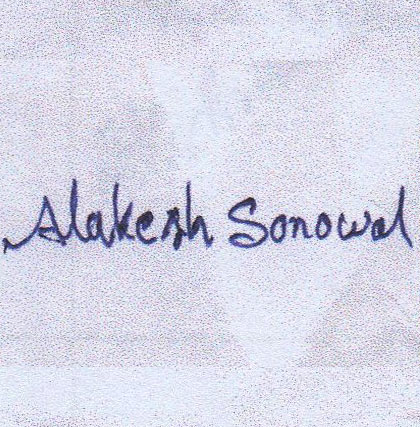 Alakesh Sonowal